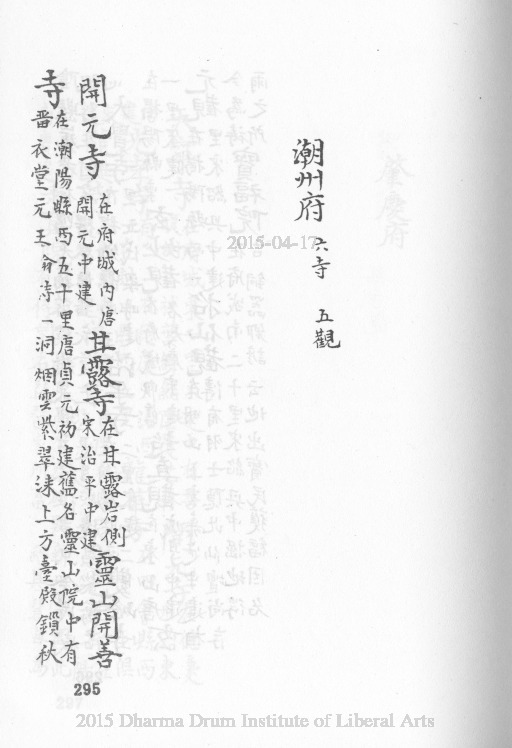 潮州府 六寺 五觀
開元寺 在府城内唐開元中建 甘露寺 在甘露岩側宋治平中建 靈山開善
寺 在潮陽縣西五十里唐貞元初建舊名靈山院中有畱衣堂元王翁 一洞烟雲紫翠 上方臺殿鎖秋
295
2015-04-17
2015 Dharma Drum Institute of Liberal Arts